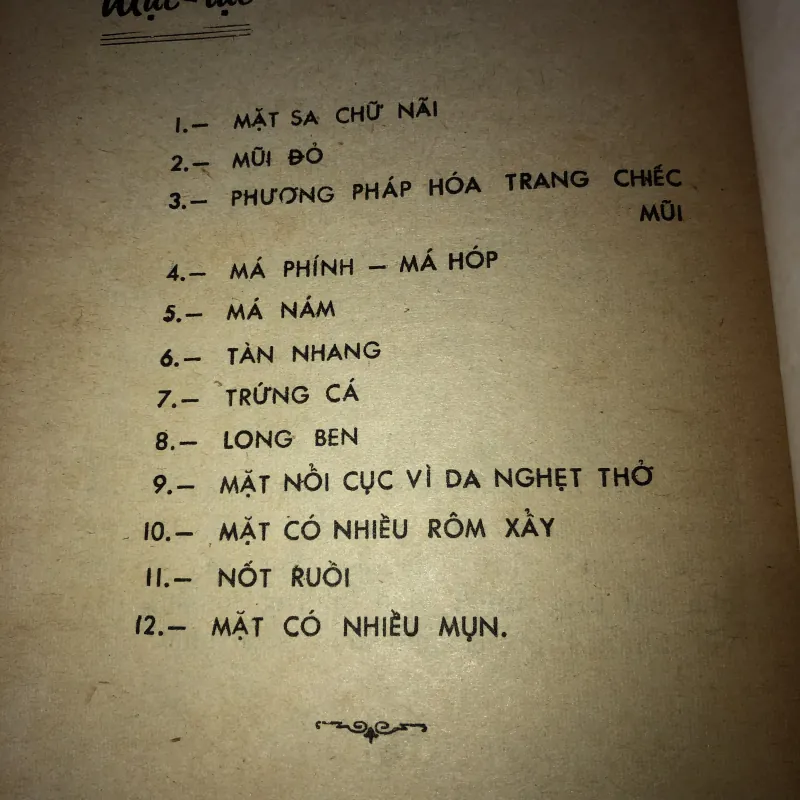 Mục-lục
1.— MẶT SA CHỮ NÃI
2.— MŨI ĐỎ
3.— PHƯƠNG PHÁP HÓA TRANG CHIẾC
MŨI
4.— MÁ PHÍNH — MÁ HÓP
5.— MÁ NÁM
6.— TÀN NHANG
7.— TRỨNG CÁ
8.— LONG BEN
9.— MẶT NỔI CỤC VÌ DA NGHẸT THỞ
10.— MẶT CÓ NHIỀU RÔM XẨY
11.— NỐT RUỒI
12.— MẶT CÓ NHIỀU MỤN.